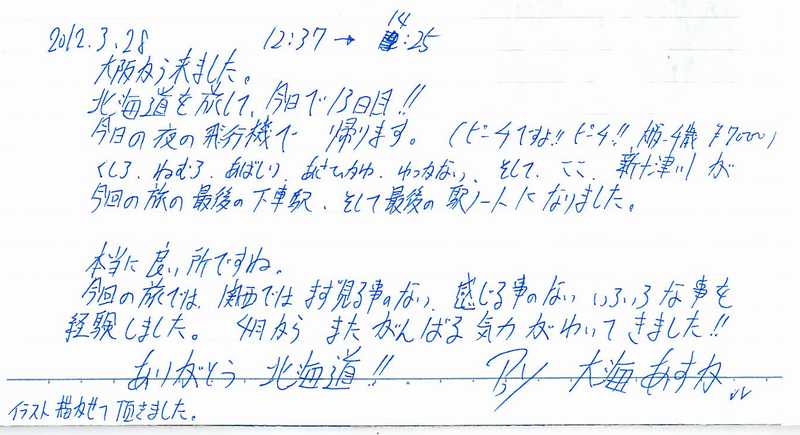 2012.3.28 12:37 → 14:25
大阪から来ました。
北海道を旅して、今日で13日目!!
今日の夜の飛行機で 帰ります。(ピーチですよ!! ピーチ!! ¥7000)
くしろ、ねむろ、あばしり、あさひかわ、わっかない、そして、ここ、新十津川が
今回の旅の最後の下車駅、そして最後の駅ノートになりました。
本当に良い所ですね。
今回の旅では、関西ではまず見る事のない、感じる事のないいろいろな事を
経験しました。4月から またがんばる気力がわいてきました!!
ありがとう 北海道!! 大海あすか
イラスト描かせて頂きました。